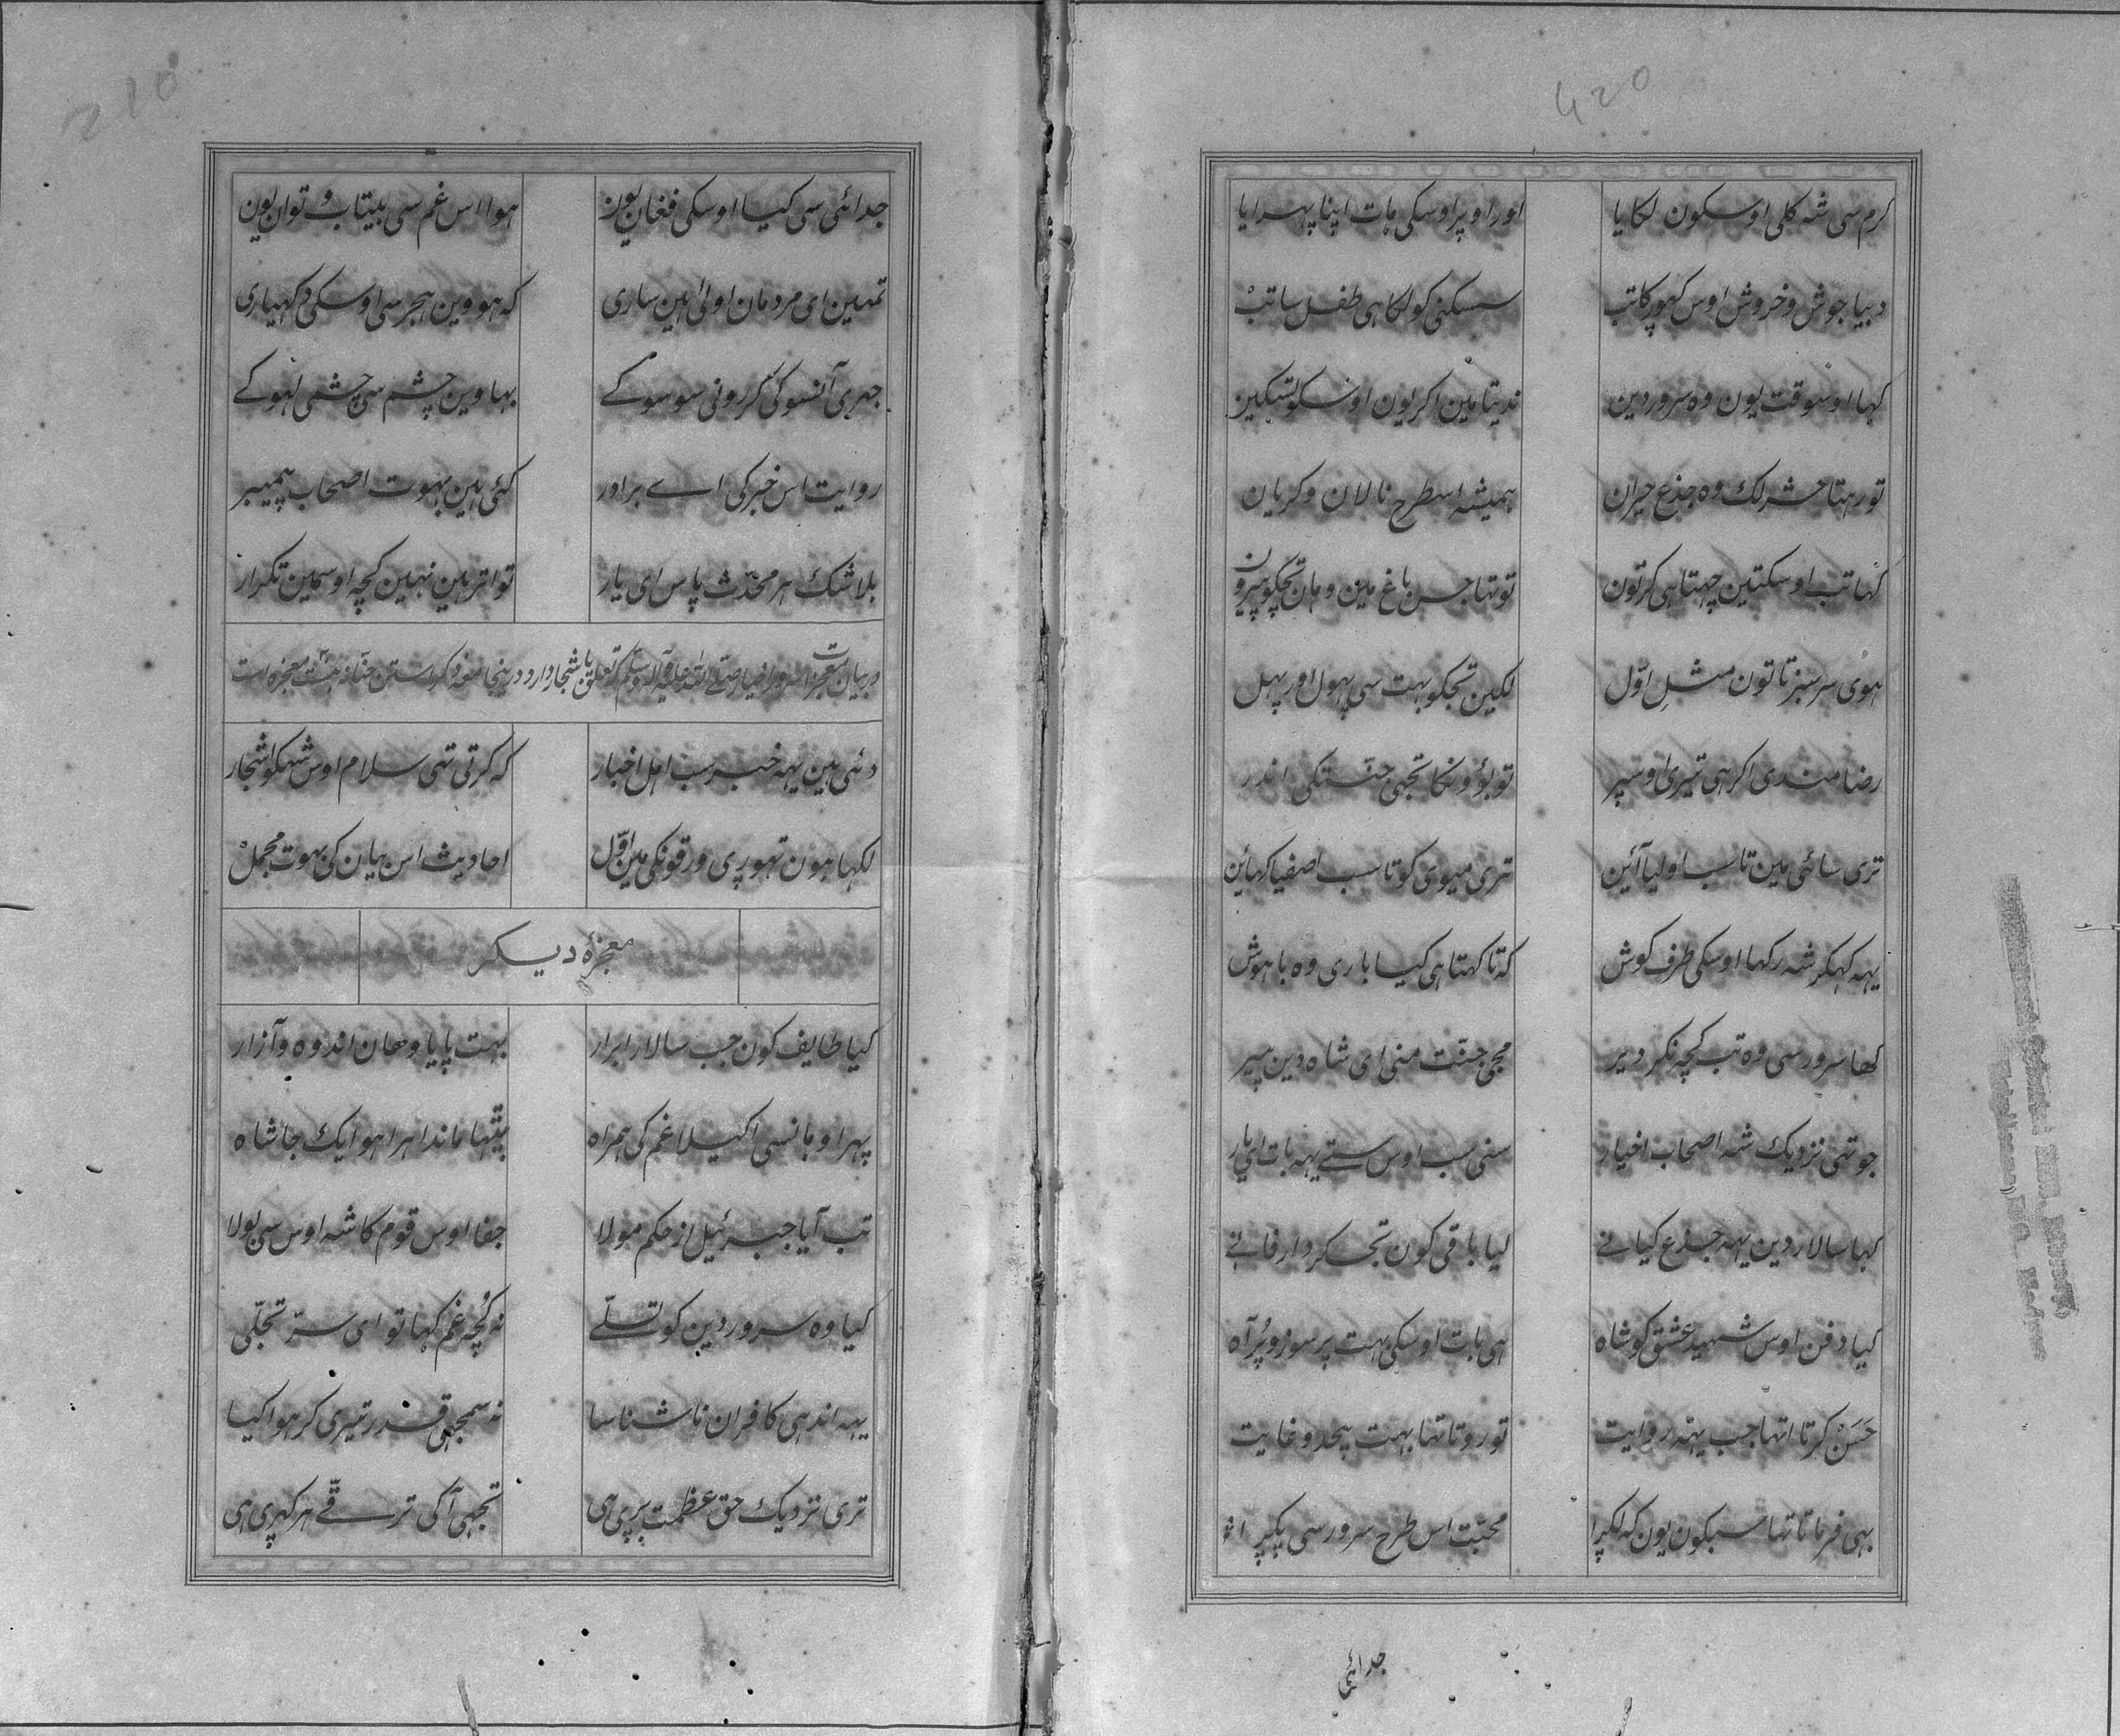 420
کرم سی شہ کلی اوسکون لکایا اور اوپر اوسکی ہات اپنا پہرایا
دبیا جوش و خروش اوس کہور کا تب سسکنی کو لکا ہی طفل سا تب
کہا اوسوقت یون وہ سرور دین ندیتا مین اکر یون اوسکو تسکین
تو رہتا حشر لک وہ جذع حیران ہمیشہ اسطرح نالان و کریان
کہا تب اوسکتین چہتا ہی کر تون تو تہا جس باغ مین وہان تجکو پیرون
ہوی سر سبز تا تون مثلِ اوّل لکین تجکو بہت سی پہول اور پہل
رضامندی اکر ہی تیری اوسپر تو بؤونکا تجہی جنّتکی اندر
تری سائی مین تا سب اولیا آئین تری میوی کو تا سب اصفیا کہائین
یہہ کہکر شہ رکہا اوسکی طرف کوش کہ تا کہتا ہی کیا باری وہ باہوش
کہا سرور سی وہ تب کچہ نکر دیر مجی جنّت منی ای شاہ دین پیر
جو تہی نزدیک شہ اصحاب اخیار سنی سب اوس ستے یہہ بات ای یار
کہا سالار دین یہہ جذع کیا نے لیا باقی کون تج کر دار فانے
کیا دفن اوس شہید عشق کو شاہ ہی بات اوسکی بہت پر سوز و پُر آہ
حَسَنْ کرتا اتہا جب یہہ روایت تو روتا تہا بہت بیحد و غایت
یہی فرماتا تہا سبکون یون کہ لکڑا محبّت اس طرح سرور سی پکڑا
جدائی
210
جدائی سی کیا اوسکی فغان یون ہوا اس غم سی بیتاب و توان یون
تمہین ای مردمان اولیٰ ہین ساری کہ ہووین ہجر سی اوسکی دکہیاری
جہری آنسو کی کر رونی سو سو کے بہاوین چشم سی چشمی لہو کے
روایت اس خبر کی اے برادر کئی ہین بہوت اصحاب پیمبر
بلاشک ہر محدّث پاس ای یار تواتر ہین نہین کچہ اوسمین تکرار
دئی ہین یہہ خبر سب اہل اخبار کہ کرتی تہی سلام اوس شہکو اشجار
لکہا ہون تہوری ورقونکی مین اوّل احادیث اس بیان کی بہوت مجمل
معجزۂ دیکر
کیا طایف کون جب سالار ابرار بہت پایا وہان اندوہ و آزار
پہرا وہانسی اکیلا غم کی ہمراہ بیٹہا ماندا ہرا ہو ایک جا شاہ
تب آیا جبرئیل از حکم مولا جفا اوس قوم کا شہ اوس سی بولا
کیا وہ سرور دین کو تسلّے نہ کُچہ غم کہا تو ای سرّ تجلّی
یہہ اندہی کافران ناشناسا نہ سمجہی قدر تیری کر ہوا کیا
تری نزدیک حق عظمت بڑی ہی تجہی آکی ترقّے ہر کہری ہی